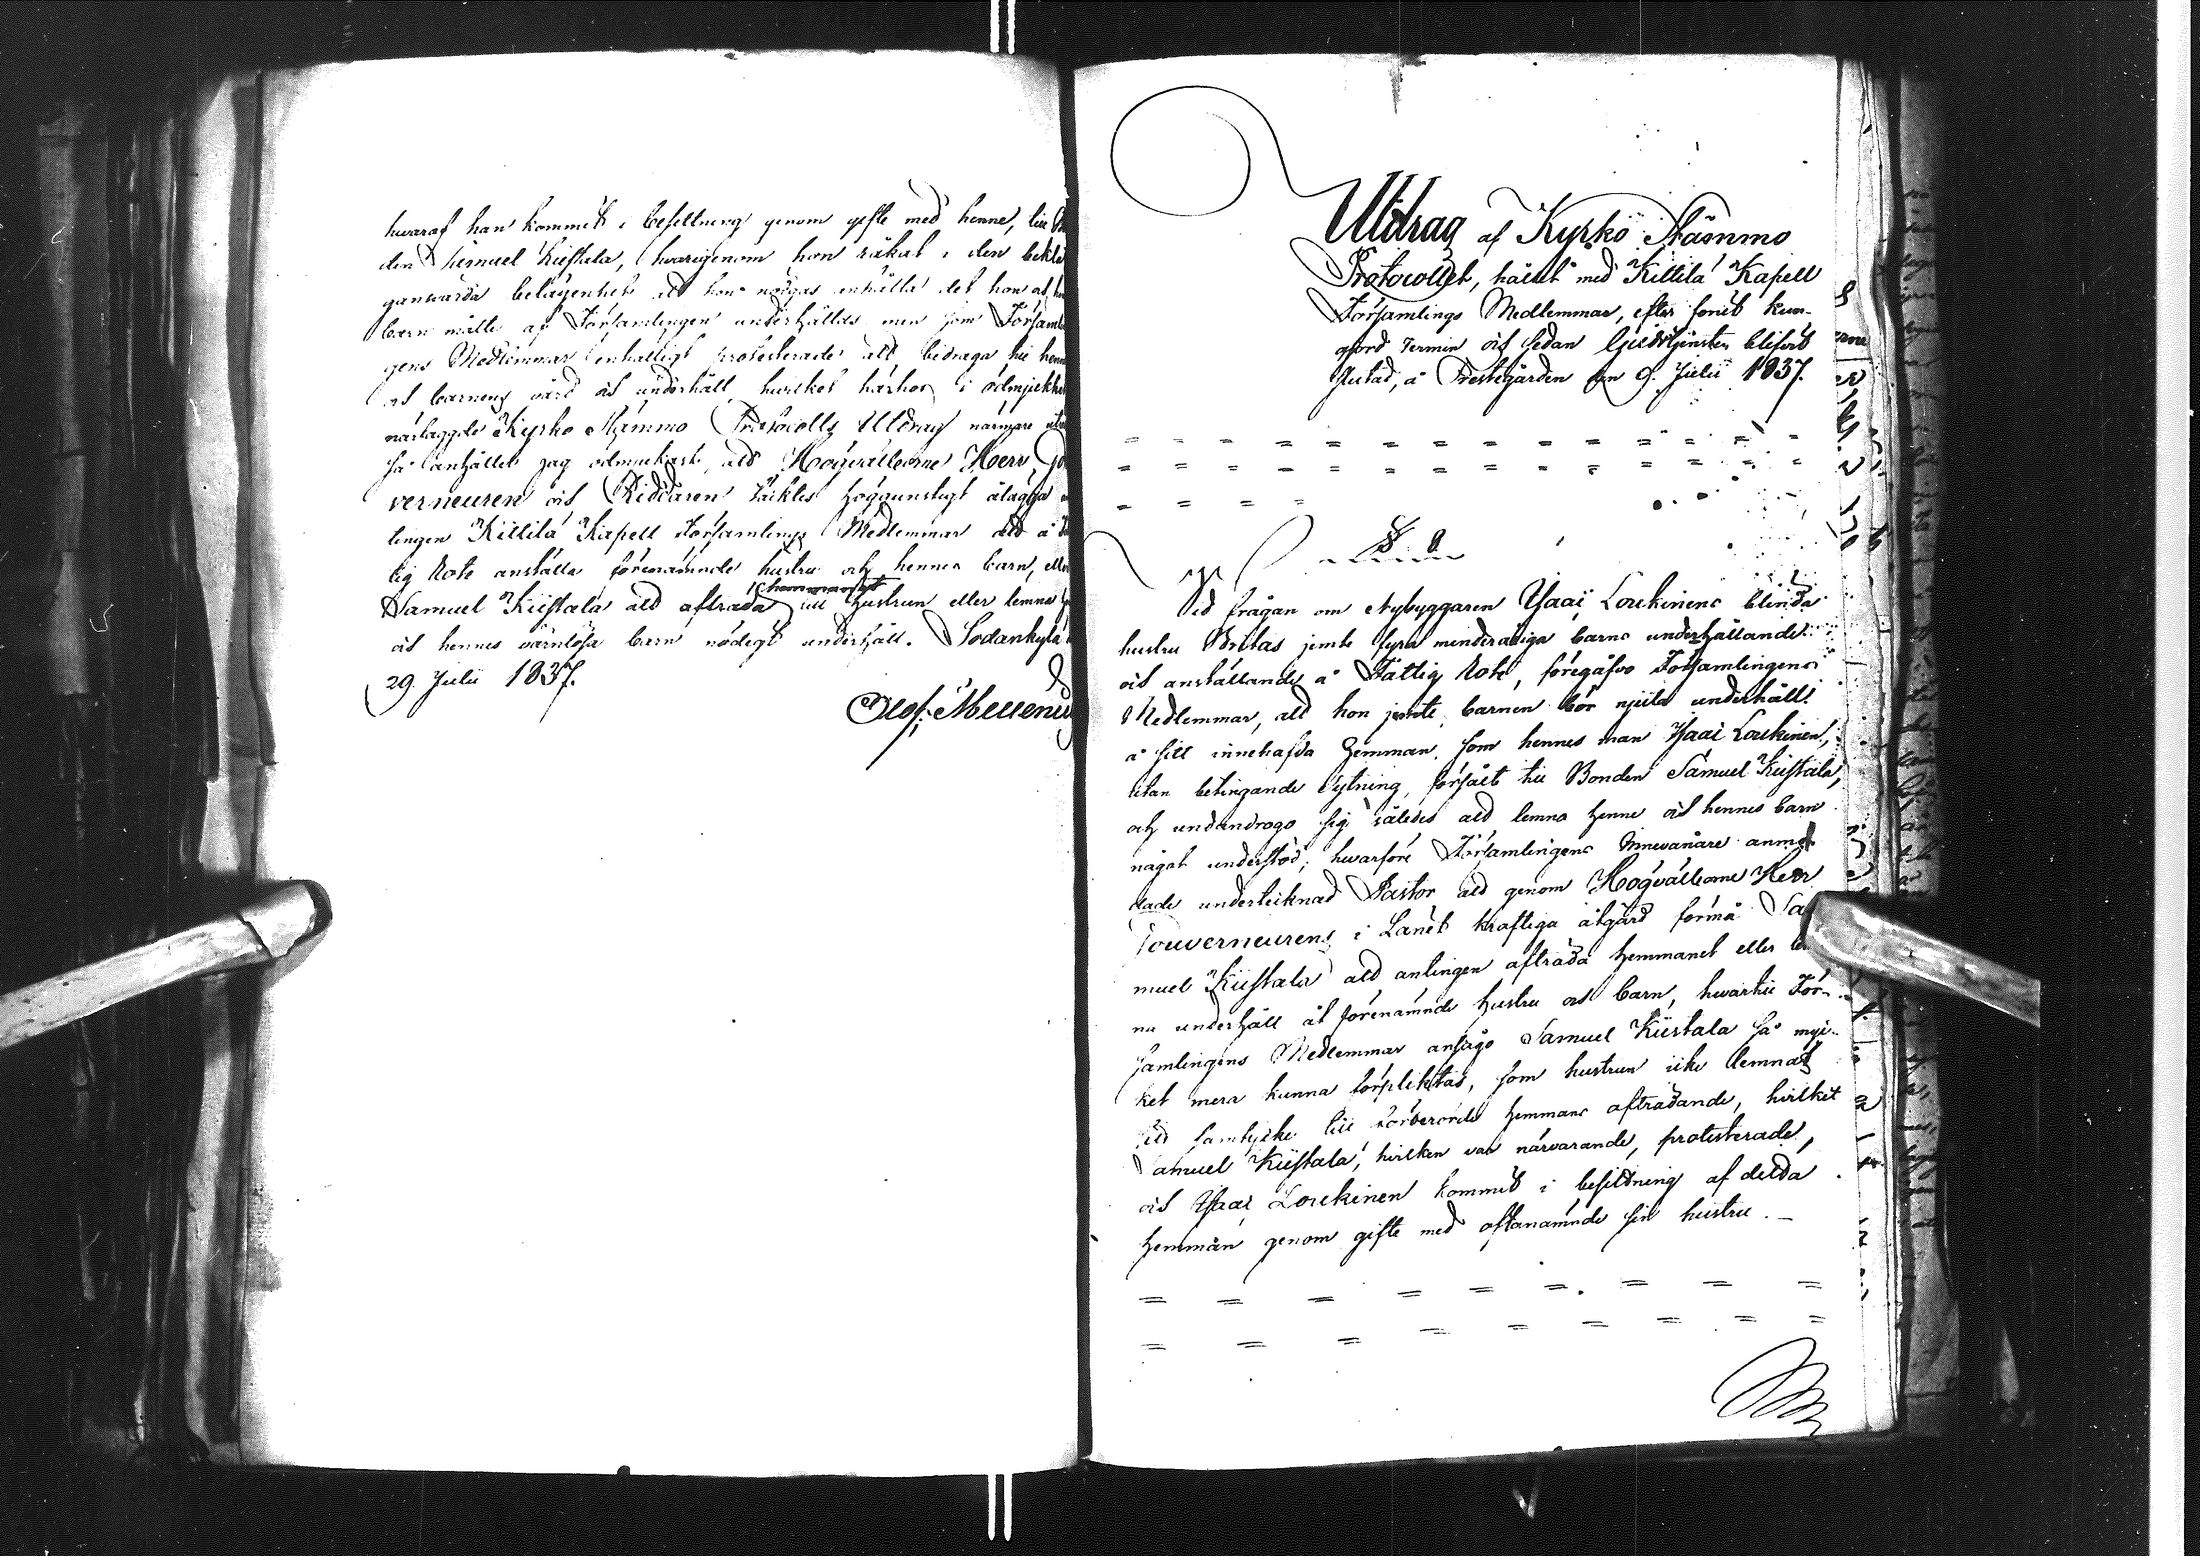 hwaraf han kommit i besittning genom gifte med henne, till Bon
den Samuel Kiistala, hwarigenom hon råkat i den bekla
gansvärda belägenhet att hon nödgas anhålla det hon och hennes
barn måtte af Församlingen underhållas men som Församlin
gens Medlemmar enhälligt protesterade att bidraga till hennes
och barnens vård och underhåll, hvilket härhos i ödmjukhet
närlaggde Kyrko Stämmo Protocolls Utdrag närmare utvi
så anhåller jag ödmjukast, att Högvälborne Herr Gou
verneuren och Riddaren täcktes höggunstigt ålägga
tingen Kittilä Kapell Församlings Medlemmar att å Fat
tig Rote anställa förenämnde hustru och hennes barn, eller
Samuel Kiistala att afträda hemmanet till hustrun eller lemna
och hennes värnlösa barn nödigt underhåll. Sodankylä
29. Julii 1837.
Olof Mellenius
Utdrag af Kyrko Stämmo
Protocollet, hållet med Kittilä Kapell
Församlings Medlemmar, efter förut kun-
gjord termin och sedan Gudstjensten blifvit
slutad, å Prestegården den 9. Julii 1837.
§
Vid frågan om Nybyggaren Isaac Loukinens blinda
hustru Britas jemte fyra minderåriga barns underhållande
och anställande å Fattig Rote, föregåfvo Församlingens
Medlemmar, att hon jemte barnen bör njuta underhåll
å sitt innehafda hemman, som hennes man Isaac Loukinen,
utan betingande sytning, försålt till Bonden Samuel Kiistala,
och undandrogo sig således att lemna henne och hennes barn
något understöd; hwarföre Församlingens Innevånare anmo-
dade undertecknad Pastor att genom Högvälborne Herr
Gouverneurens i Länet kraftiga åtgärd förmå Sa
muel Kiistala att antingen afträda hemmanet eller lem
na underhåll åt förenämnde hustru och barn, hwartill För-
samlingens Medlemmar ansågo Samuel Kiistala så myc-
ket mera kunna förpliktas, som hustrun icke lemnat
sitt samtycke till förberörde hemmans afträdande, hvilket
Samuel Kiistala, hvilken var närvarande, protesterade,
och Isaac Loukinen kommit i besittning af detta
hemman genom gifte med oftanämnde sin hustru.